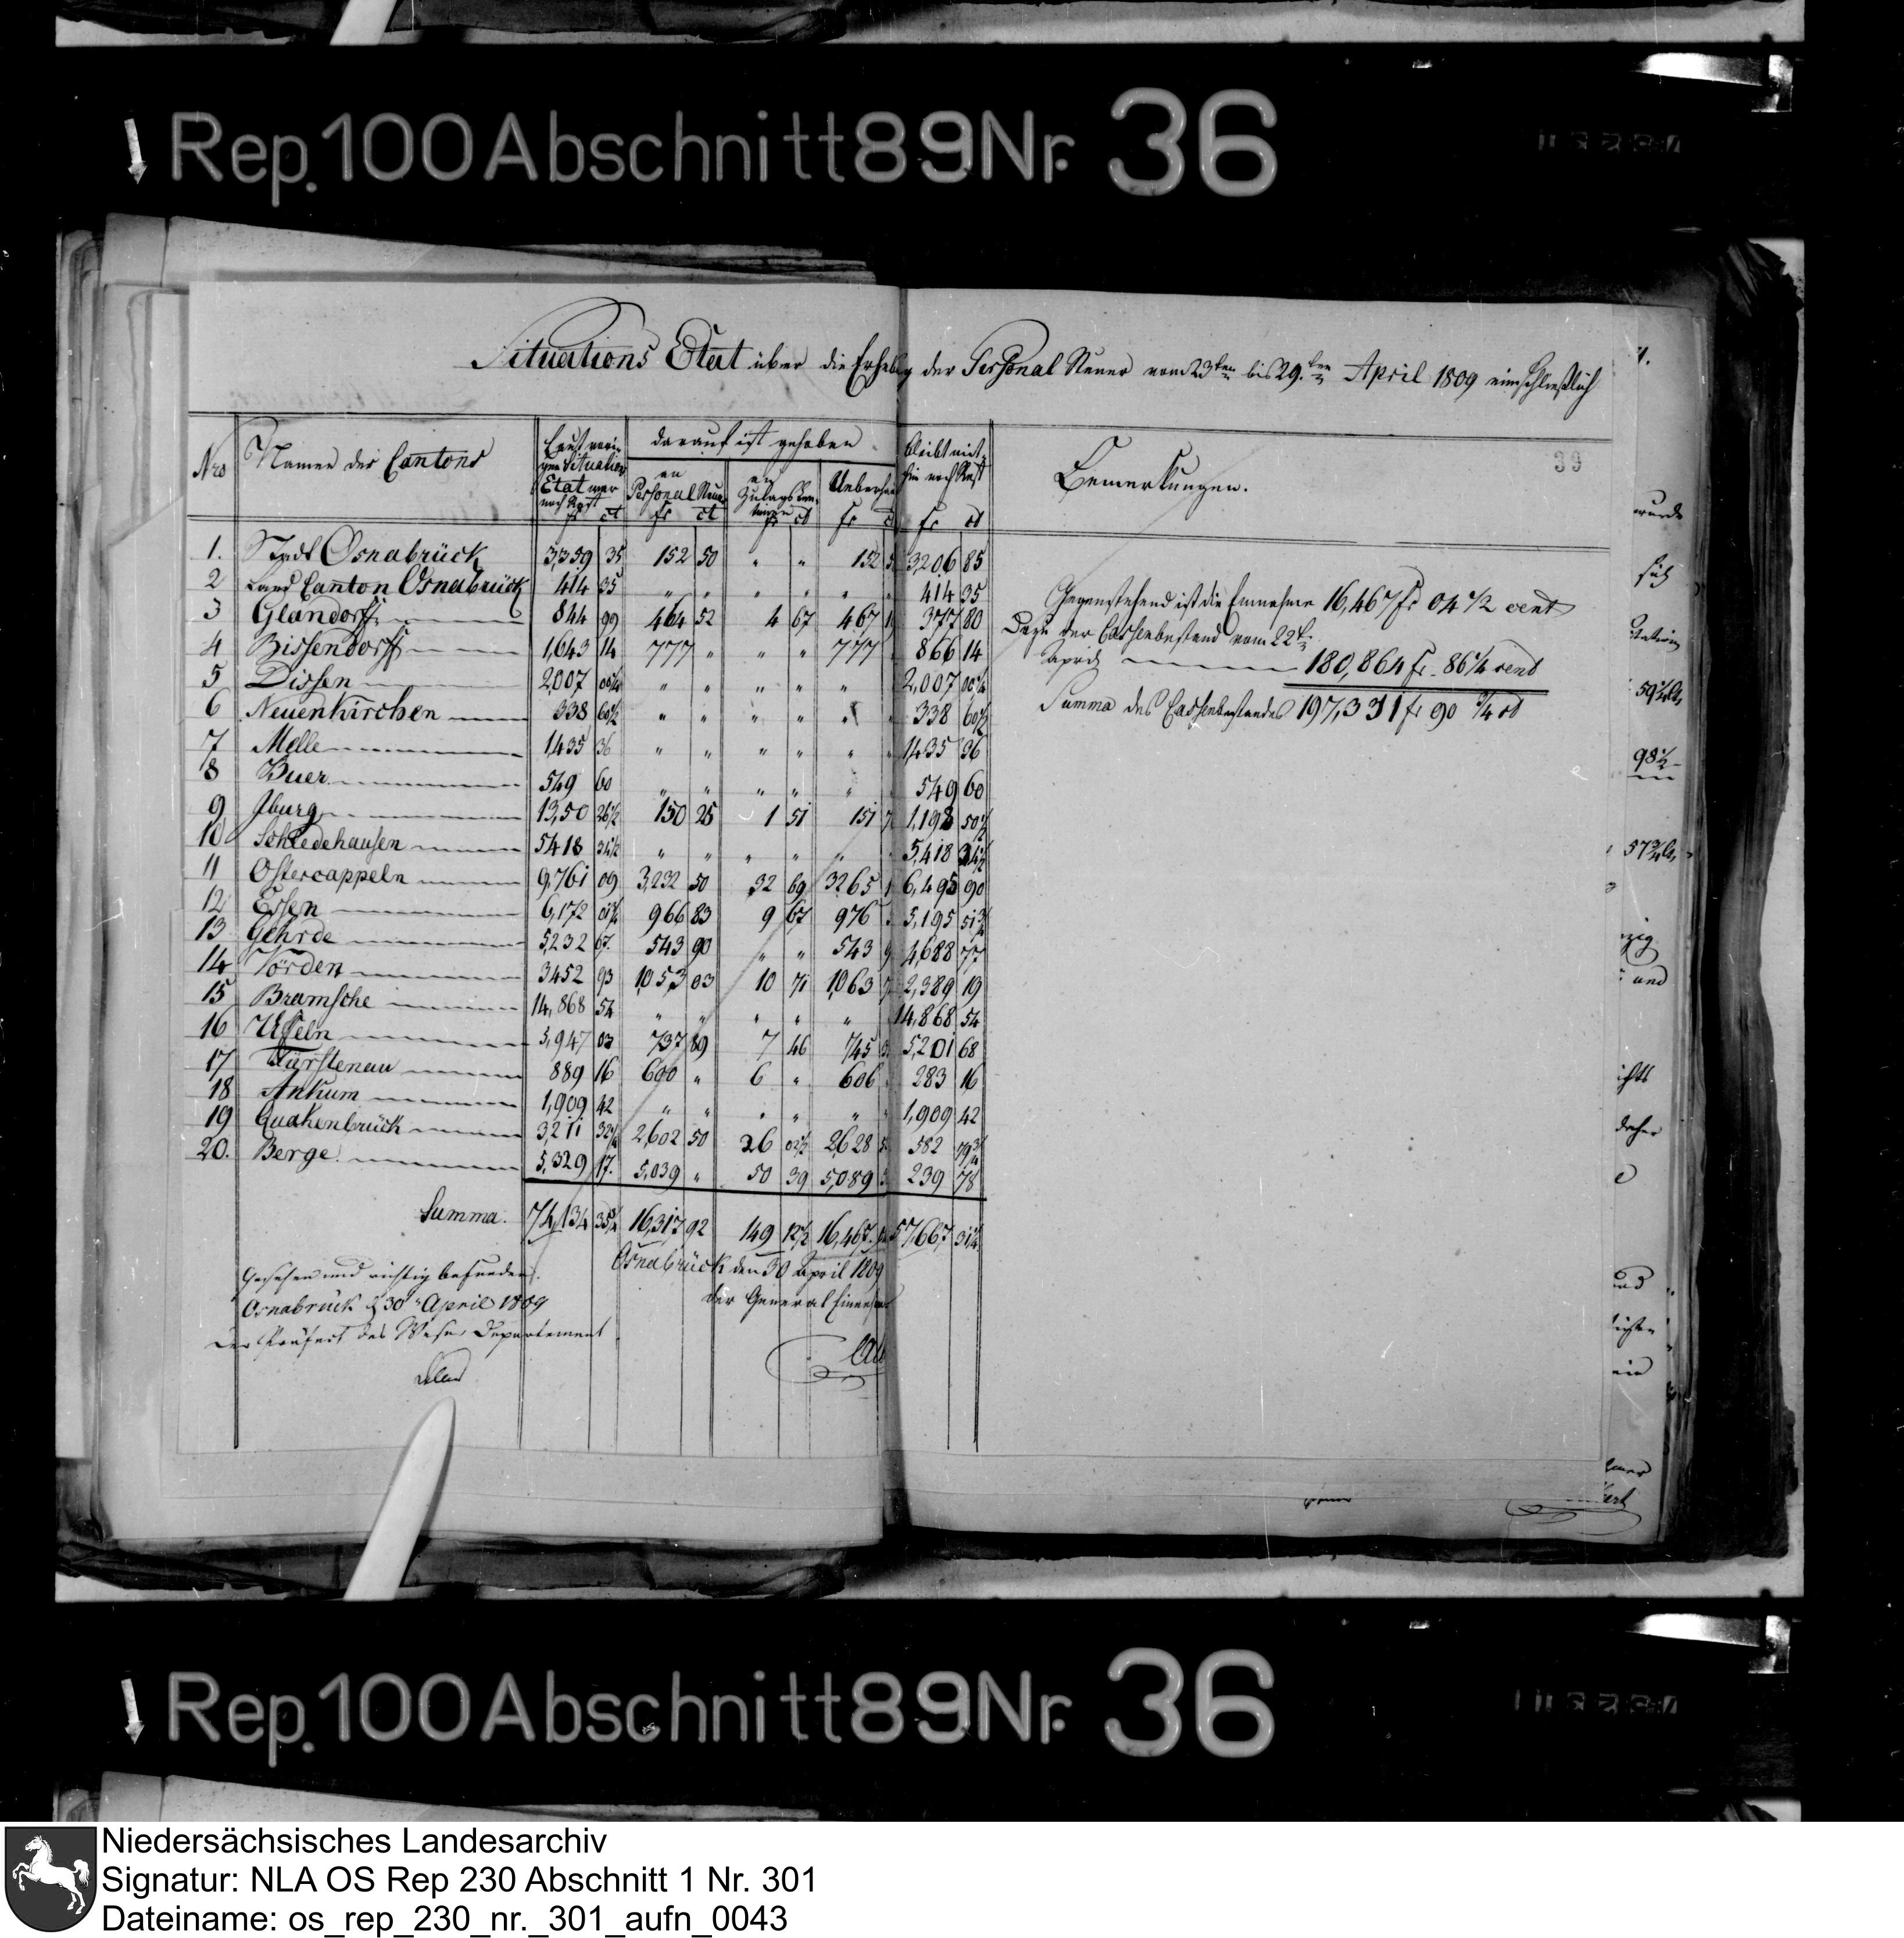 Rep.100Abschnitt89Nr. 36
Situations Etat über die Erhebg der Personal Steuer vom 23ten bis 29.ten April 1809 einschließlich
39
Nro Namen der Cantons Laut vorigen Situations Etat war noch Rest darauf ist gehoben bleibt mithin noch Rest Bemerkungen.
an Personal Steuer an Zulags Centimen Ueberhaupt
fr ct fr ct fr ct fr fr ct
1. Stadt Osnabrück 3,359 35 152 50 " " 152 3,206 85
2 Land Canton Osnabrück 414 35 " " " " " 414 35
3 Glandorff 844 99 464 52 4 67 467 377 80
4 Bissendorff 1,643 14 777 " " " 777 866 14
5 Dissen 2,007 " " " " " 2,007
6 Neuenkirchen 338 60½ " " " " " 338 60½
7 Melle 1,435 36 " " " " " 1,435 36
8 Buer 549 60 " " " " " 549 60
9 Iburg 13,50 26½ 150 25 1 51 151 1,198 50½
10 Schledehausen 5418 34½ " " " " " 5,418 34½
11 Ostercappeln 9,761 09 3,232 50 32 69 3265 6,495 90
12 Essen 6,172 966 83 9 67 976 5,195
13 Gehrde 5,232 67. 543 90 " " 543 4,688 77
14 Vörden 3452 93 1,053 03 10 71 1,063 2,389 19
15 Bramsche 14,868 54 " " " " " 14,868 54
16 Uffeln 5,947 03 737 89 7 46 745 5,201 68
17 Fürstenau 889 16 600 " 6 " 606 283 16
18 Ankum 1,909 42 " " " " " 1,909 42
19 Quakenbrück 3,211 2,602 50 26 02½ 2,628 582 79¾
20. Berge 5,329 17. 5,039 " 50 39 5,089 239 78
Summa. 74,134 35¾ 16,317 92 149 12½ 16,467. 57,667 31¼
Gegenstehend ist die Einnahme 16,467 fr 04½ cent
Dazu der Cassenbestand vom 22t.
April 180,864 fr. 86¼ cent
Summa des Cassenbestandes 197,331 fr 90 ¾ ct
Osnabrück den 30 April 1809
der General Einnehmer
Gesehen und richtig befunden.
Osnabrück d 30 April 1809
Der Präfect des Weser Departement
Rep.100Abschnitt89Nr. 36
Niedersächsisches Landesarchiv
Signatur: NLA OS Rep 230 Abschnitt 1 Nr. 301
Dateiname: os_rep_230_nr._301_aufn_0043